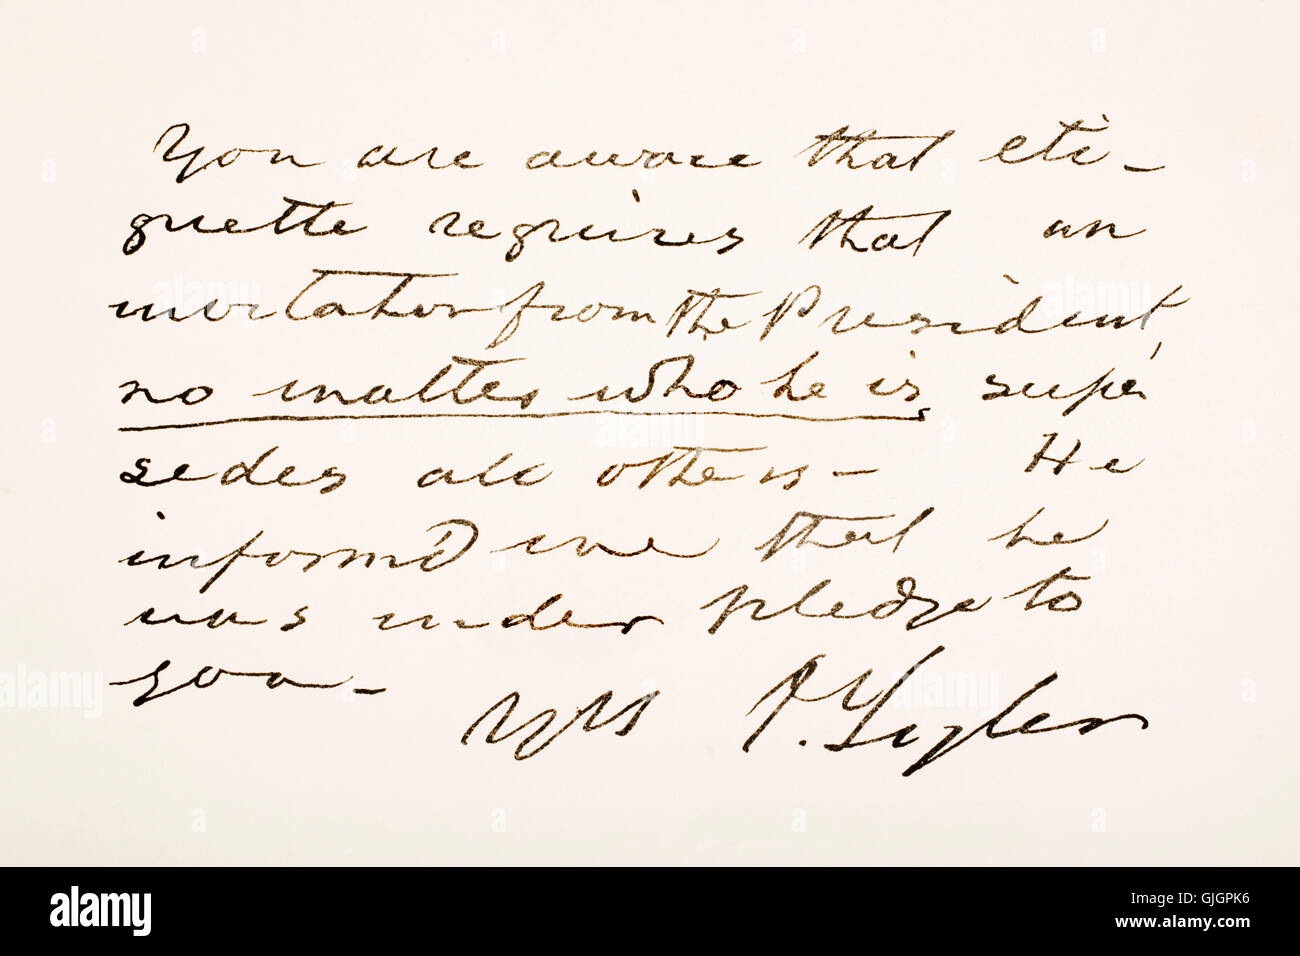 You are aware that eti-
quette requires that an
invitation from the President,
no matter who he is super
sedes all others — He
inform'd me that he
was under pledge to
you —
Yrs P. Tyler
alamy
Image ID: GJGPK6
www.alamy.com